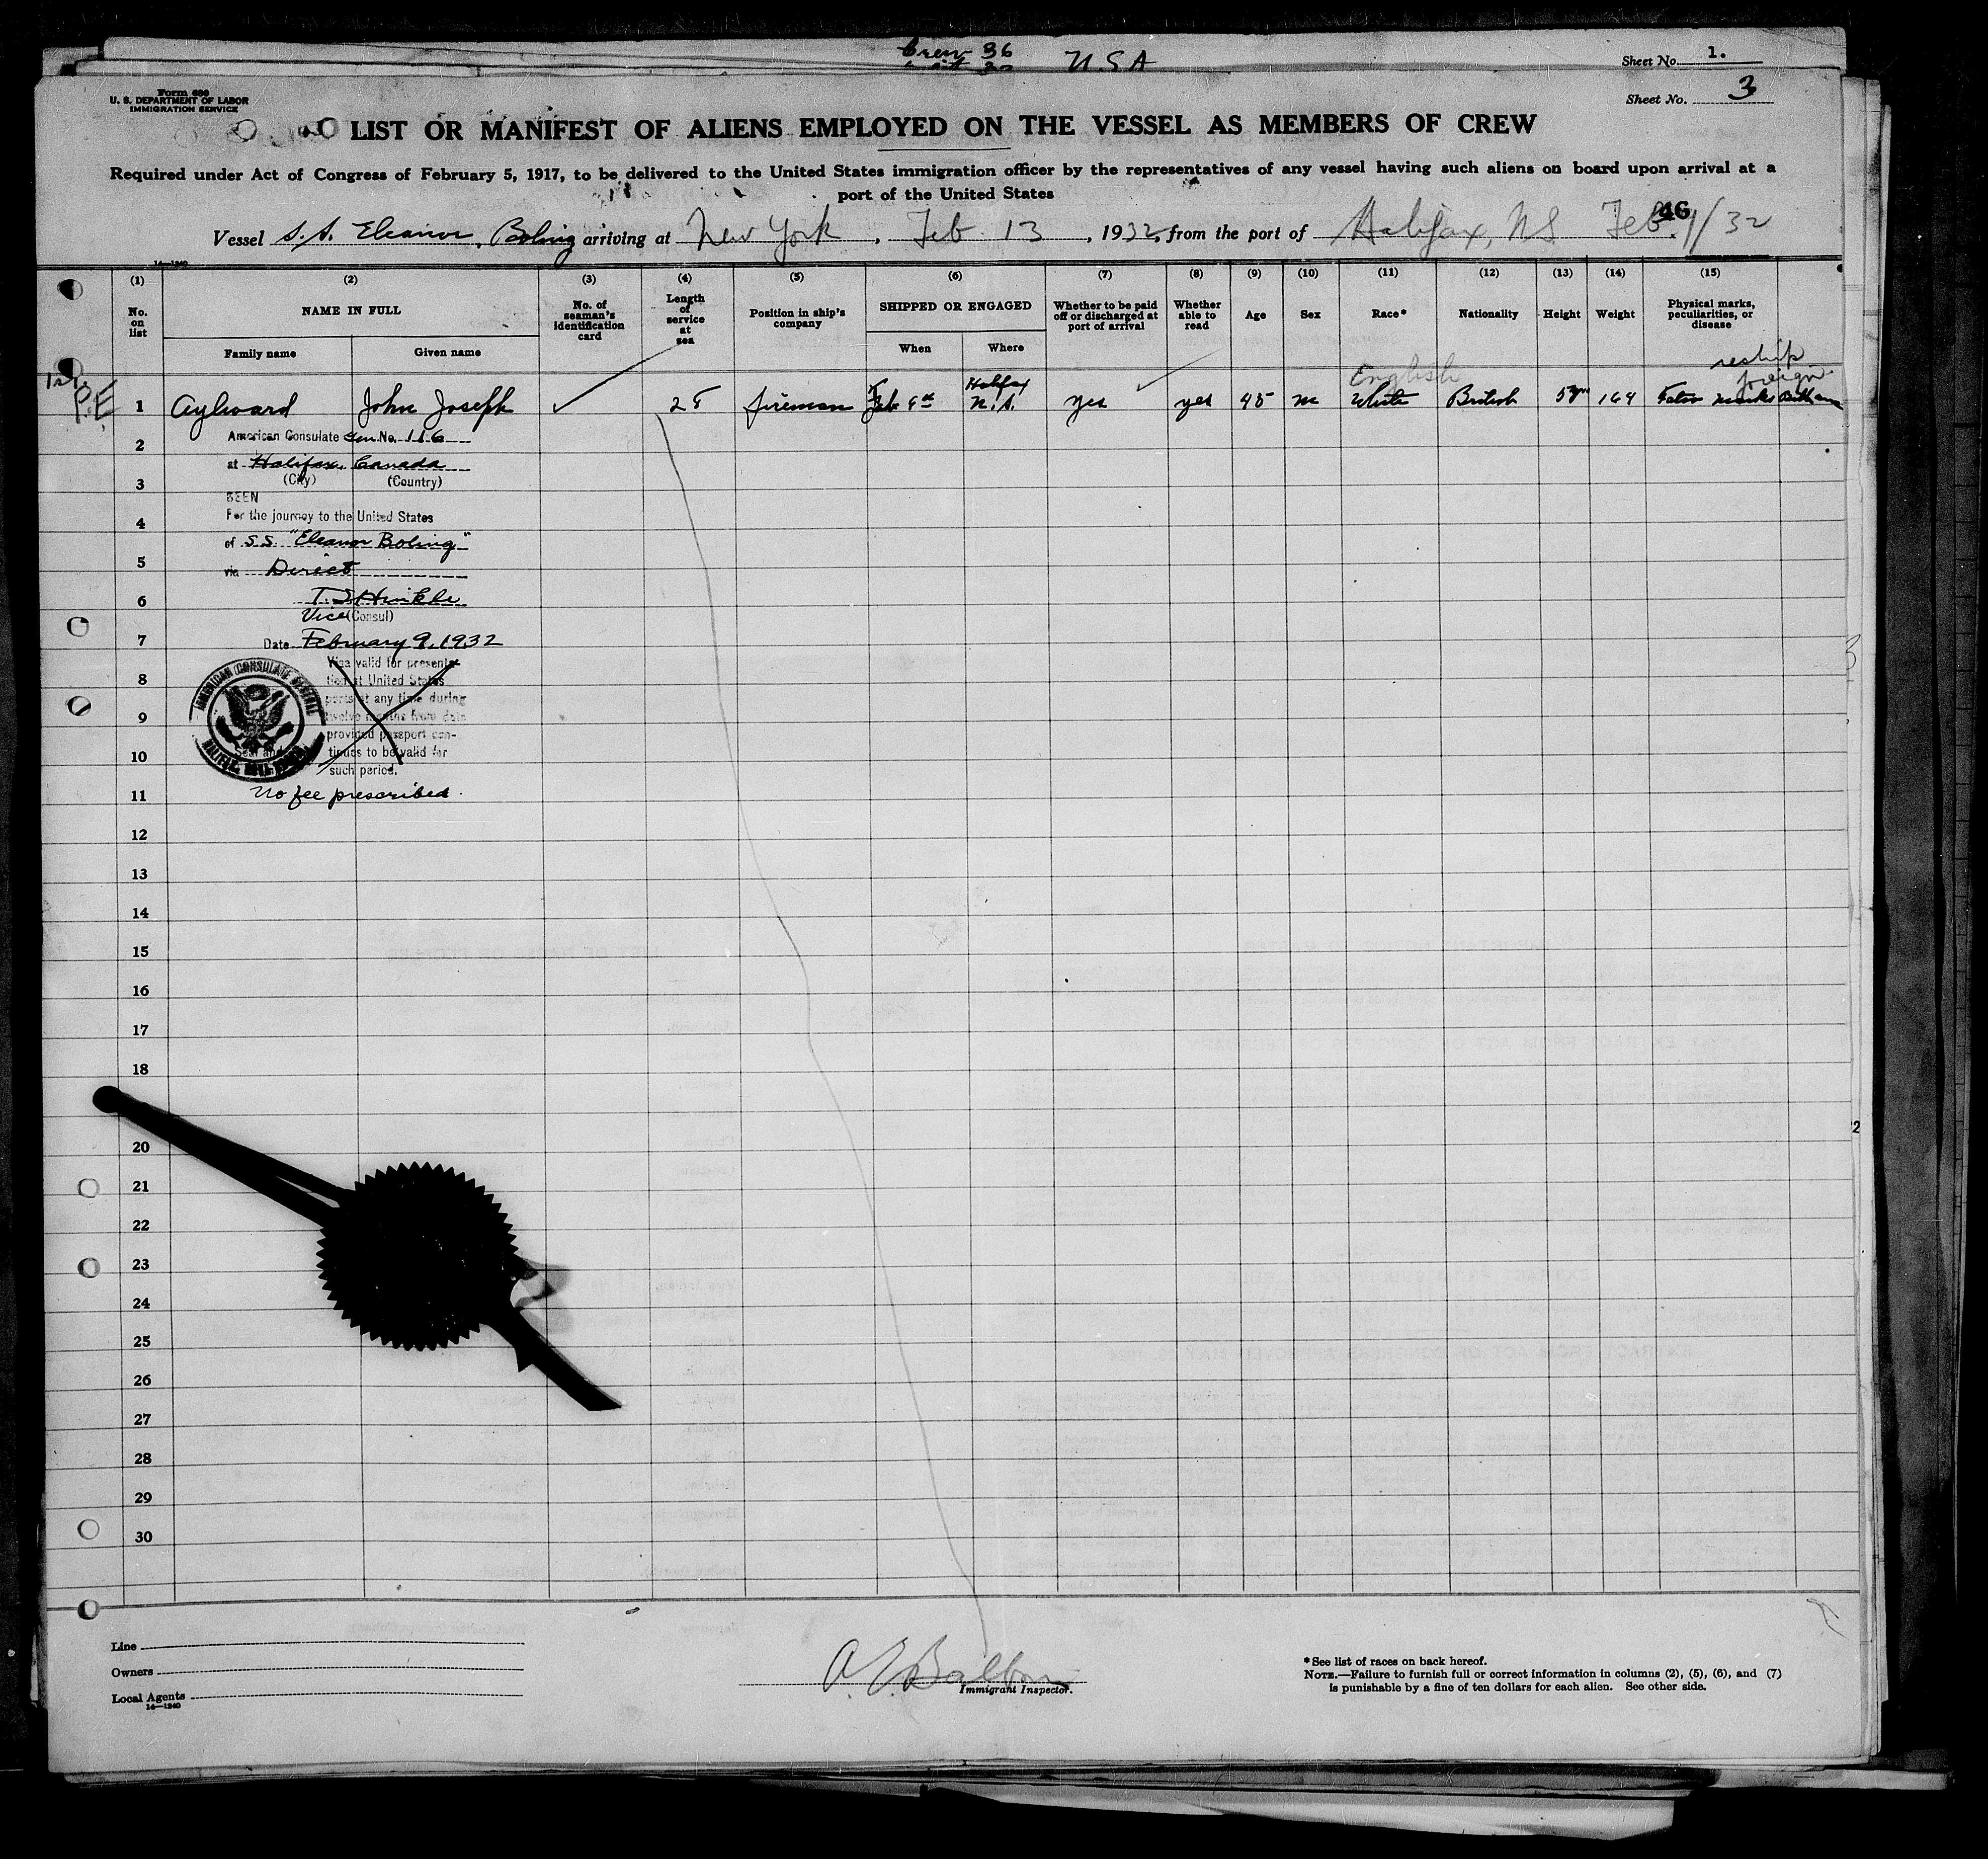 Crew 36 U.S.A
Sheet No. 1.
Form 689
U. S. DEPARTMENT OF LABOR
IMMIGRATION SERVICE
Sheet No. 3
LIST OR MANIFEST OF ALIENS EMPLOYED ON THE VESSEL AS MEMBERS OF CREW
Required under Act of Congress of February 5, 1917, to be delivered to the United States immigration officer by the representatives of any vessel having such aliens on board upon arrival at a
port of the United States
46
Vessel S.S. Eleanor Boling arriving at New York, Feb 13, 1932, from the port of Halifax, NS Feb. 9/32
14—1240
(1) (2) (3) (4) (5) (6) (7) (8) (9) (10) (11) (12) (13) (14) (15)
No. on list
NAME IN FULL
Family name Given name
No. of seaman's identification card
Length of service at sea
Position in ship's company
SHIPPED OR ENGAGED
When Where
Whether to be paid off or discharged at port of arrival
Whether able to read
Age
Sex
Race*
Nationality
Height
Weight
Physical marks, peculiarities, or disease
reship
foreign
English
Halifax
P.E. 1 Aylward John Joseph 25 fireman Feb N.S. yes yes 45 m White British 164 marks
2 American Consulate Gen. No. 116
at Halifax, Canada
3 (City) (Country)
SEEN
4 For the journey to the United States
of S.S. "Eleanor Boling"
5 via Direct
6 T.S. Hinkle
Vice (Consul)
7 Date February 9, 1932
Visa valid for presenta-
8 tion at United States
ports at any time during
9 twelve months from date
provided passport con-
10 tinues to be valid for
such period.
AMERICAN CONSULATE GENERAL
Seal and
11 No fee prescribed.
12
13
14
15
16
17
18
20
21
22
23
24
25
26
27
28
29
30
Line
Owners
Local Agents
14—1240
Immigrant Inspector.
*See list of races on back hereof.
NOTE.—Failure to furnish full or correct information in columns (2), (5), (6), and (7)
is punishable by a fine of ten dollars for each alien. See other side.